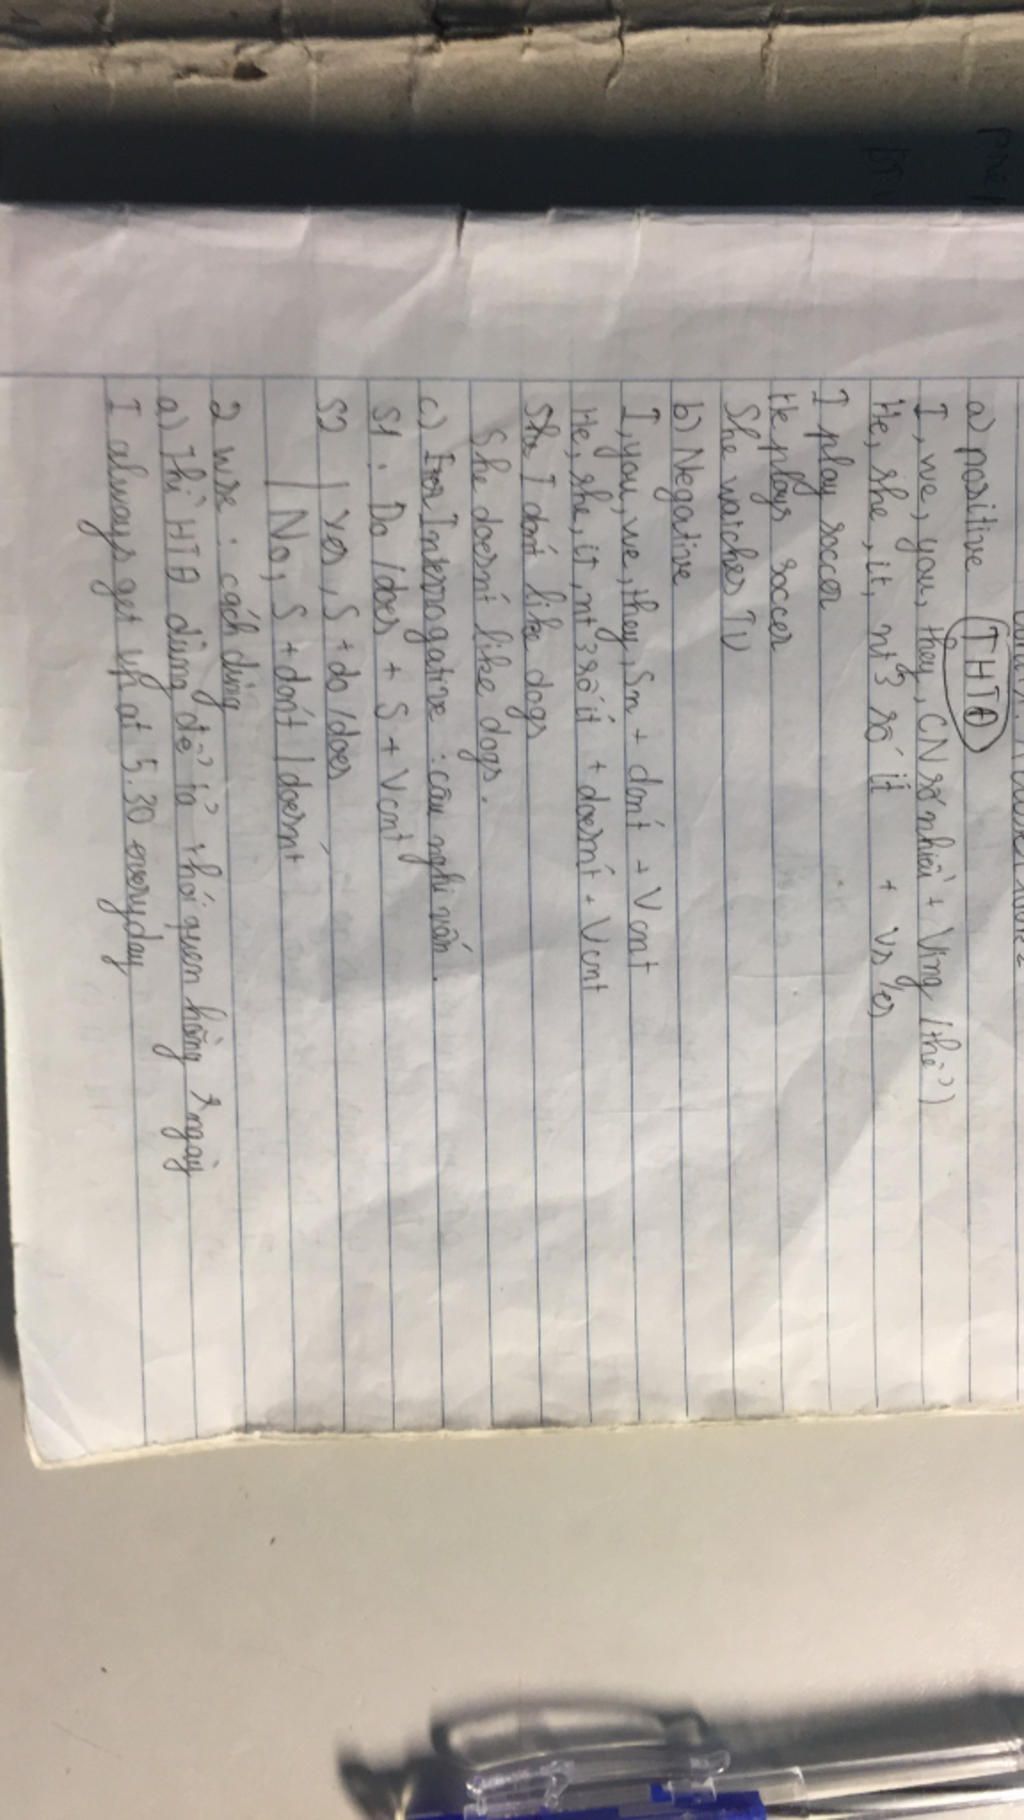 a) positive (THTĐ)
I, we, you, they, CN số nhiều + Ving (thể)
He, she, it, nt3 số ít + Vs/es
I play soccer
He plays soccer
She watches TV
b) Negative
I, you, we, they, Sn + don't + Vcnt
He, she, it, nt 3 số ít + doesn't + Vcnt
I don't like dogs
She doesn't like dogs.
c) Interrogative : câu nghi vấn.
S1 : Do /does + S + Vcnt
S2 | Yes, S + do /does
| No, S + don't /doesn't
2 use : cách dùng
a) Thì HTĐ dùng để tả thói quen hằng ngày
I always get up at 5.30 everyday